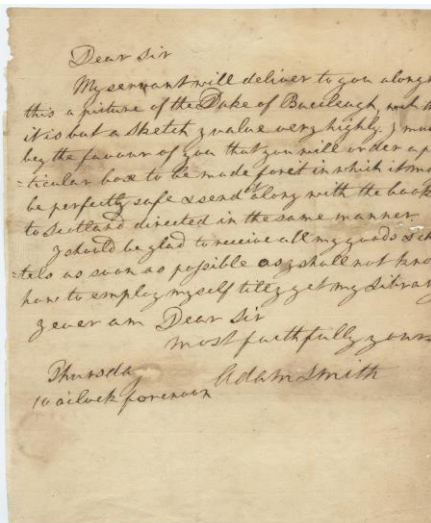 Dear Sir
My servant will deliver to you along
this a picture of the Duke of Buccleugh,
it is but a Sketch I value very highly. I mu
beg the favour of you that you will order a p
=ticular box to be made for it in which it m
be perfectly safe & send along with the book
to Scotland directed in the same manner.
I should be glad to receive all my goods & ch
=tels as soon as possible as I shall not kno
how to employ myself till I get my Librar
I ever am Dear Sir
most faithfully yours
Thursda
10 o'clock forenoon Adam Smith